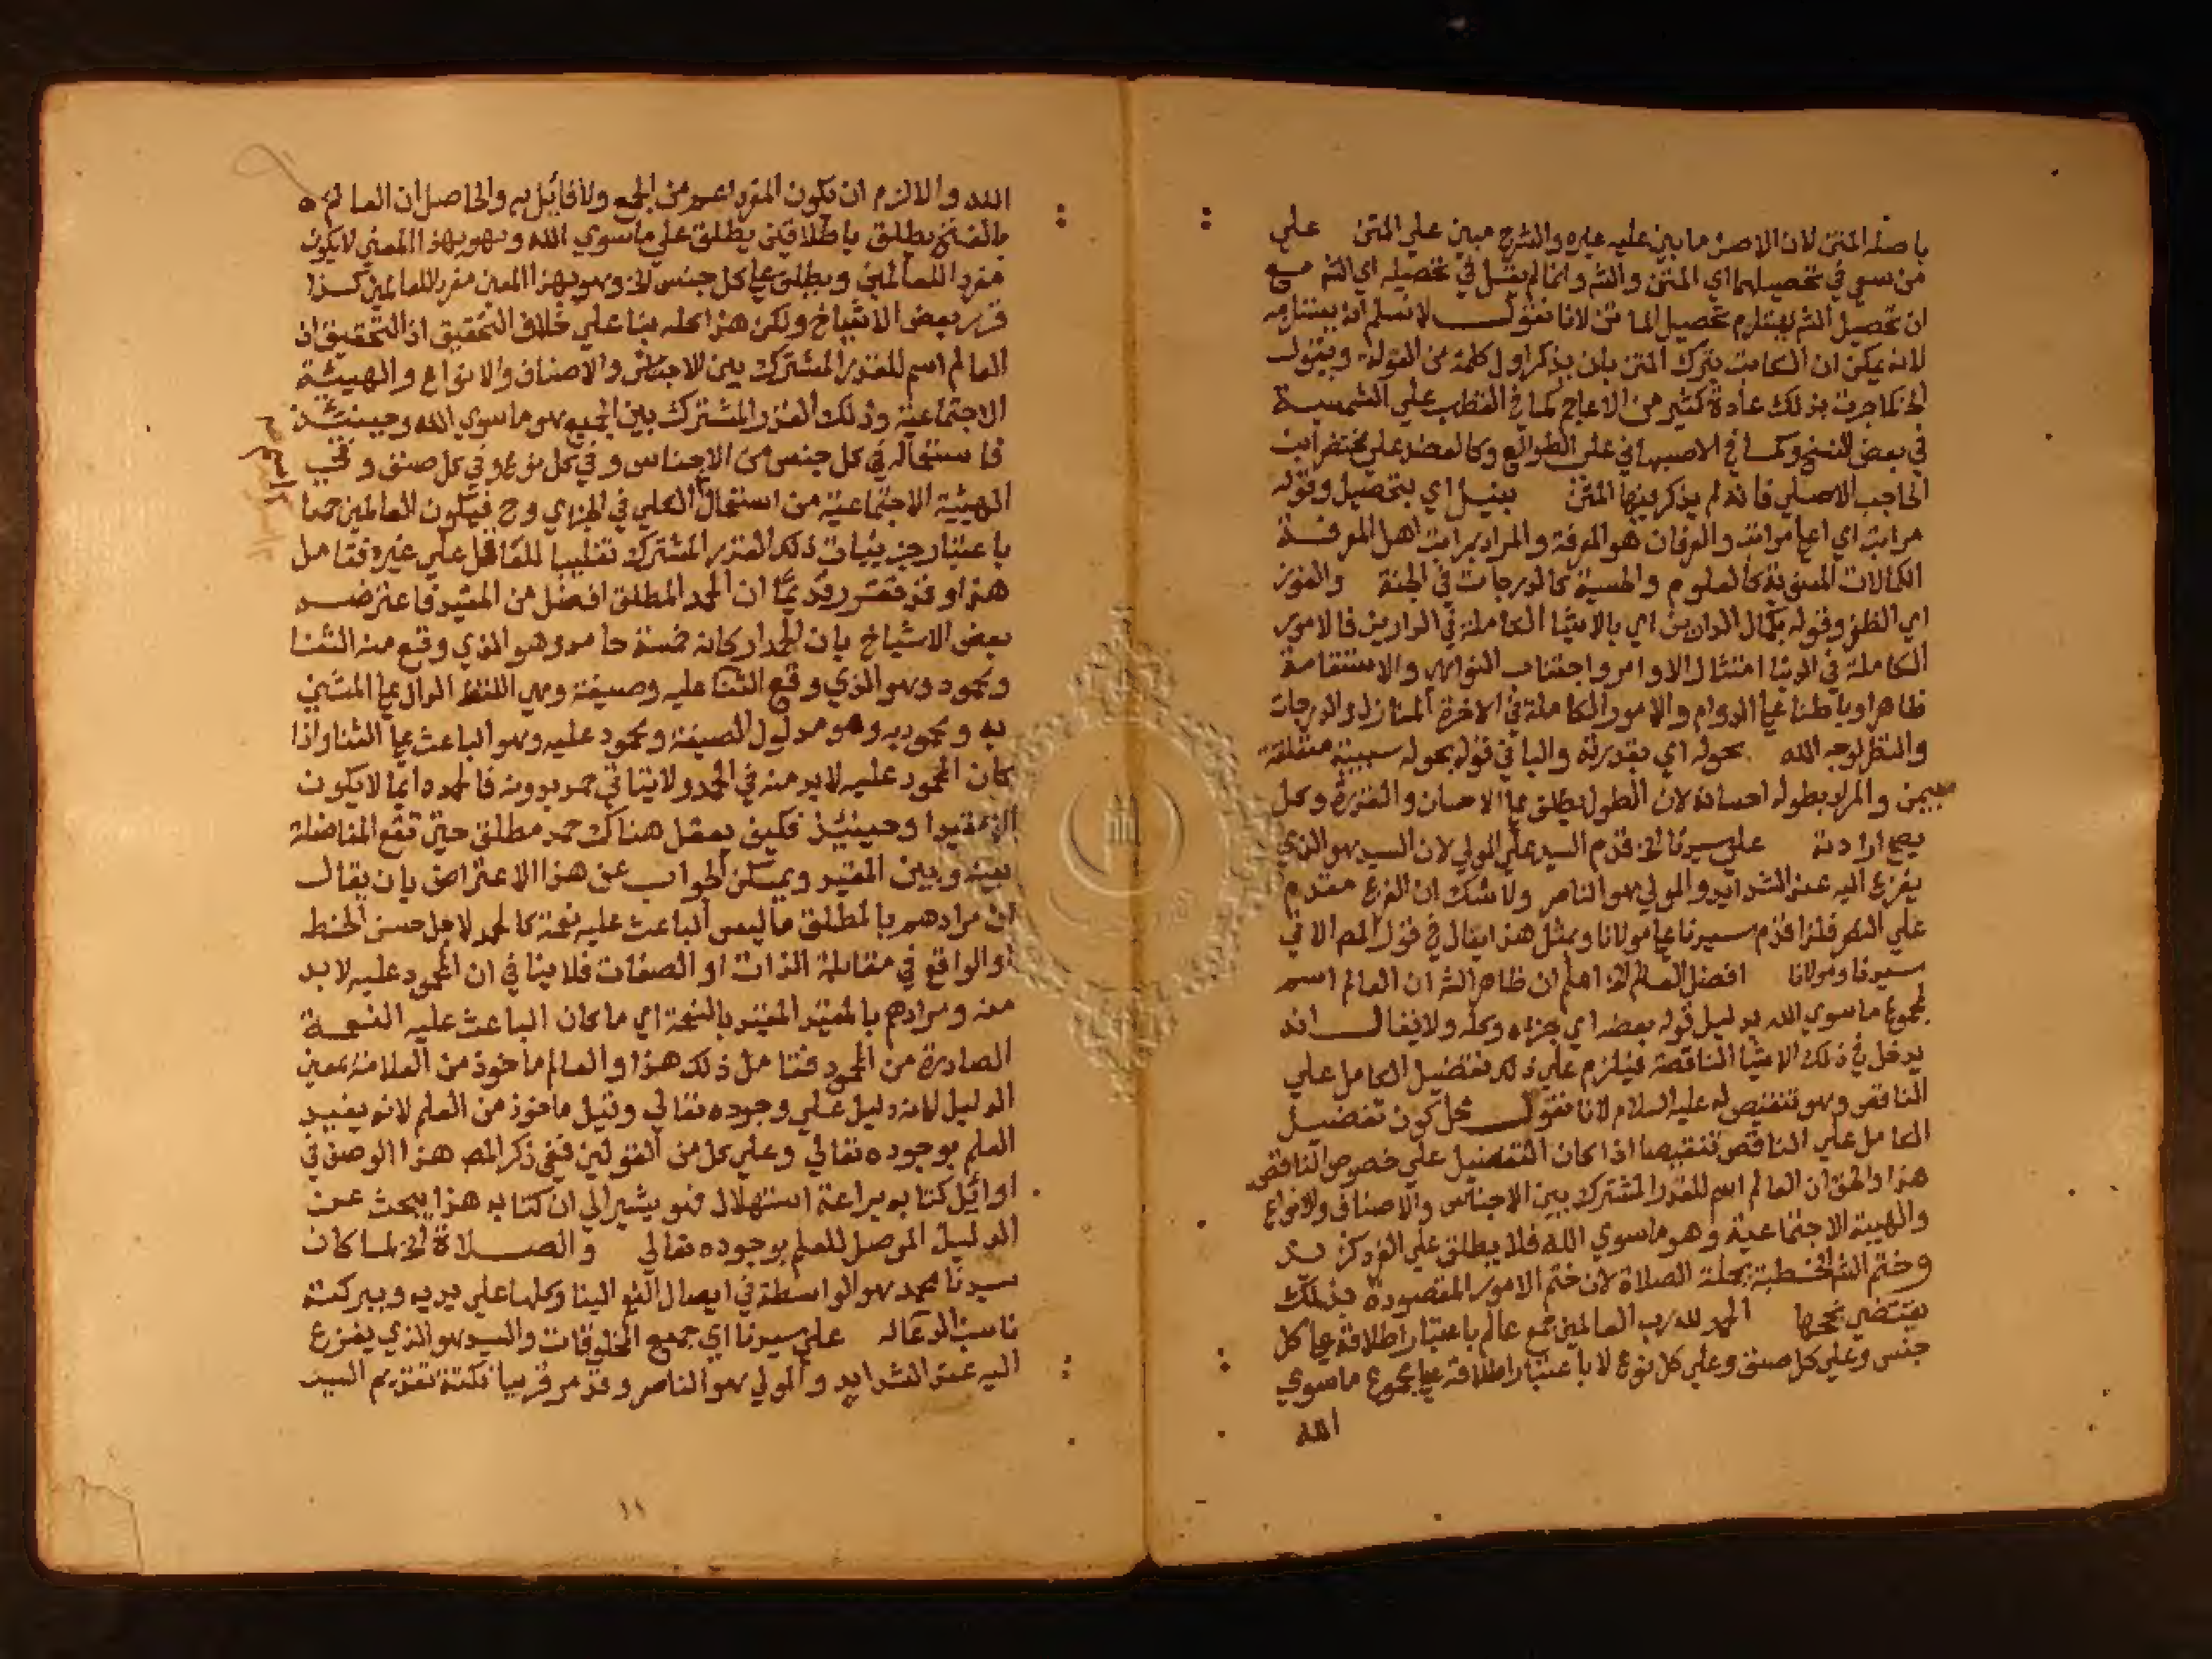 باصله المتن لان الاصل ما بني عليه غيره والشرح مبني علي المتن علي
من سعي في تحصيلهما اي المتن والشر وانما لم يقل في تحصيله اي الشر مع
ان تحصيل الشر يستلزم تحصيل الماتن لانا نقول لا نسلم انه يستلزمه
لانه يمكن ان الكاتب يترك المتن بان يذكر اول كلمة من القولة ويقول
الخ كما جرت بذلك عادة كثير من الاعاجم كما في القطب علي الشمسية
في بعض النسخ وكما في الاصبهاني علي الطوالع وكالعضد علي مختصر ابن
الحاجب الاصلي فانه لم يذكر فيها المتن بنيل اي بتحصيل وقوله
مراتب اي اعلا مراتب والعرفان هو المعرفة والمراد بمراتب اهل المعرفة
الكمالات المعنوية كالعلوم والحسية كالدرجات في الجنة والفوز
اي الظفر وقوله بكمال الدارين اي بالاشيا الكاملة في الدارين فالامور
الكاملة في الدنيا امتثال الاوامر واجتناب النواهي والاستقامة
ظاهرا وباطنا علي الدوام والامور الكاملة في الاخرة المنازل والدرجات
والنظر لوجه الله بحوله اي بقدرته والبا في قوله بحوله سببية متعلقة
والمراد بطوله احسانه لان الطول يطلق علي الاحسان والقدرة وكل
يصح ارادته علي سيدنا الخ قدم السيد علي المولي لان السيد هو الذي
يفزع اليه عند الشدايد والمولي هو الناصر ولا شك ان الفزع مقدم
علي النصر فلذا قدم سيدنا علي مولانا ومثل هذا يقال في قول المص الاتي
سيدنا ومولانا افضل العالم الخ اعلم ان ظاهر الشر ان العالم اسم
لمجموع ما سوي الله بدليل قوله بعضه اي جزءه وكله ولا يقال انه
يدخل في ذلك الاشيا الناقصة فيلزم علي ذلك تفضيل الكامل علي
الناقص وهو تنقيص له عليه السلام لانا نقول محل كون تفضيل
الكامل علي الناقص تنقيصا اذا كان التفضيل علي خصوص الناقص
هذا والحق ان العالم اسم للقدر المشترك بين الاجناس والاصناف والانواع
والهيية الاجتماعية وهو ما سوي الله فلا يطلق علي الفرد كزيد
وختم الشر الخطبة بجملة الصلاة لان ختم الامور المقصودة بذلك
يقتضي نجحها الحمد لله رب العالمين جمع عالم باعتبار اطلاقه علي كل
جنس وعلي كل صنف وعلي كل نوع لا باعتبار اطلاقه علي مجموع ما سوي
الله
الله والا لزم ان يكون المفرد اعم من الجمع ولا قائل به والحاصل ان العالم
بالفتح يطلق باطلاقين يطلق علي ما سوي الله وهو بهذا المعني لا يكون
مفردا للعالمين ويطلق علي كل جنس الخ وهو بهذا المعني مفرد للعالمين كذا
قرر بعض الاشياخ ولكن هذا كله بنا علي خلاف التحقيق اذ التحقيق ان
العالم اسم للقدر المشترك بين الاجناس والاصناف والانواع والهيئة
الاجتماعية وذلك القدر المشترك بين الجميع هو ما سوي الله وحينئذ
فاستعماله في كل جنس من الاجناس وفي كل نوع وفي كل صنف وفي
الهيئة الاجتماعية من استعمال الكلي في الجزءي وح فيكون العالمين جمعا
باعتبار جزئيات ذلك القدر المشترك تغليبا للعاقل علي غيره فتامل
هذا وقد تقرر قديما ان الحمد المطلق افضل من المقيد فاعترضه
بعض الاشياخ بان الحمد اركانه خمسة حامد وهو الذي وقع منه الثنا
ومحمود وهو الذي وقع الثنا عليه وصيغة وهي اللفظ الدال علي المثني
به ومحمود به وهو مدلول الصيغة ومحمود عليه وهو الباعث علي الثنا واذا
كان المحمود عليه لابد منه في الحمد ولا يتاتي حمد بدونه فالحمد دايما لا يكون
الا مقيدا وحينئذ فكيف يعقل هناك حمد مطلق حتي تقع المفاضلة
بينه وبين المقيد ويمكن الجواب عن هذا الاعتراض بان يقال
ان مرادهم بالمطلق ما ليس الباعث عليه نعمة كالحمد لاجل حسن الخط
او الواقع في مقابلة الذات او الصفات فلا ينافي ان المحمود عليه لابد
منه ومرادهم بالمقيد المقيد بالنعمة اي ما كان الباعث عليه النعمة
الصادرة من المحمود فتامل ذلك هذا والعالم ماخوذ من العلامة بمعني
الدليل لانه دليل علي وجوده تعالي وقيل ماخوذ من العلم لانه يفيد
العلم بوجوده تعالي وعلي كل من القولين ففي ذكر المص هذا الوصف في
اوائل كتابه براعة استهلال فهو يشير الي ان كتابه هذا يبحث عن
الدليل الموصل للعلم بوجوده تعالي والصلاة الخ لما كان
سيدنا محمد هو الواسطة في ايصال النعم الينا وكلها علي يديه وببركته
ناسب الدعا له علي سيدنا اي جميع المخلوقات والسيد هو الذي يفزع
اليه عند الشدايد والمولي هو الناصر وقد مر قريبا نكتة تقديم السيد
١١